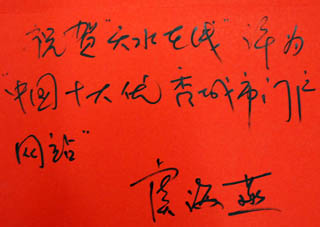 祝贺"天水在线"评为
"中国十大优秀城市门户
网站"
虞海燕